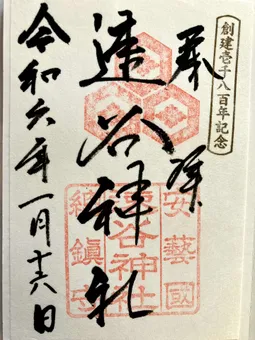 創建壱千八百年記念
奉拝
速谷神社
令和六年一月十六日
安藝國
速谷神社
総鎮守